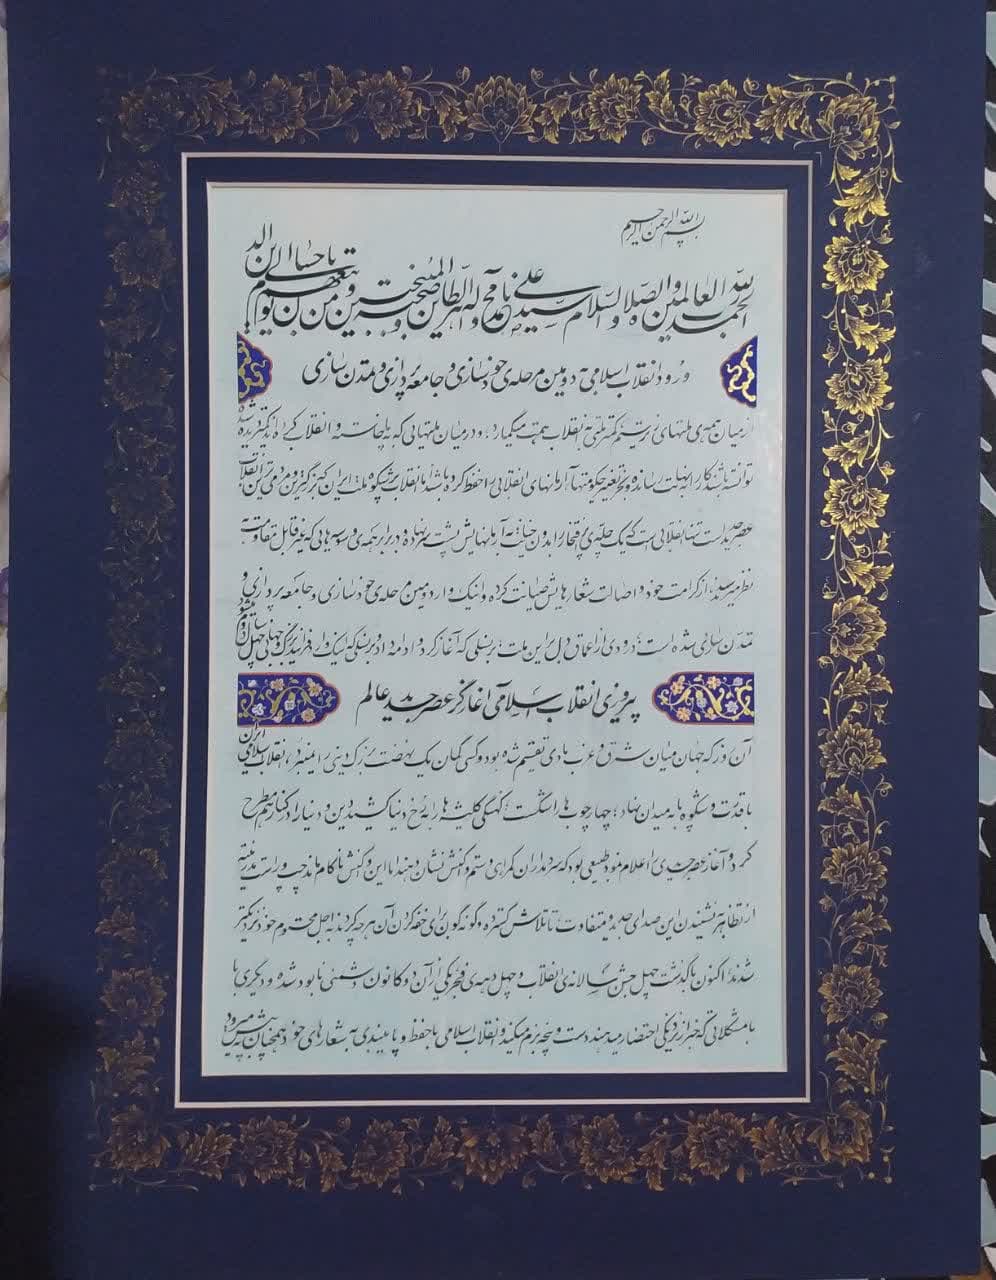 بسم الله الرحمن الرحیم
الحمدلله رب العالمین و الصلاة و السلام علی سیدنا محمد و آله الطاهرین و صحبه المنتجبین و من تبعهم باحسان الی یوم الدین
ورود انقلاب اسلامی به دومین مرحله‌ی خودسازی و جامعه‌پردازی و تمدن‌سازی
از میان همه‌ی ملتهای زیر ستم، کمتر ملتی به انقلاب همت میگمارد؛ و در میان ملتهایی که به‌پاخاسته و انقلاب کرده‌اند، کمتر دیده شده که
توانسته باشند کار را به نهایت رسانده و به‌جز تغییر حکومتها، آرمانهای انقلابی را حفظ کرده باشند. اما انقلاب پرشکوه ملت ایران که بزرگترین و مردمی‌ترین انقلاب
عصر جدید است، تنها انقلابی است که یک چله‌ی پرافتخار را بدون خیانت به آرمانهایش پشت سر نهاده و در برابر همه‌ی وسوسه‌هایی که غیر قابل مقاومت به
نظر میرسیدند، از کرامت خود و اصالت شعارهایش صیانت کرده و اینک وارد دومین مرحله‌ی خودسازی و جامعه‌پردازی و
تمدن‌سازی شده است. درودی از اعماق دل بر این ملت؛ بر نسلی که آغاز کرد و ادامه داد و بر نسلی که اینک وارد فرایند بزرگ و جهانی چهل سال دوم میشود
پیروزی انقلاب اسلامی آغازگر عصر جدید عالم
آن روز که جهان میان شرق و غرب مادی تقسیم شده بود و کسی گمان یک نهضت بزرگ دینی را نمیبرد، انقلاب اسلامی ایران
با قدرت و شکوه پا به میدان نهاد؛ چهارچوب‌ها را شکست؛ کهنگی کلیشه‌ها را به رخ دنیا کشید؛ دین و دنیا را در کنار هم مطرح
کرد و آغاز عصر جدیدی را اعلام نمود. طبیعی بود که سردمداران گمراهی و ستم واکنش نشان دهند، اما این واکنش ناکام ماند. چپ و راست مدرنیته
از تظاهر به نشنیدن این صدای جدید و متفاوت، تا تلاش گسترده و گونه‌گون برای خفه کردن آن، هر چه کردند به اجل محتوم خود نزدیکتر
شدند. اکنون با گذشت چهل جشن سالانه‌ی انقلاب و چهل دهه‌ی فجر، یکی از آن دو کانون دشمنی نابود شده و دیگری با
با مشکلاتی که خبر از نزدیکی احتضار میدهند، دست و پنجه نرم میکند! و انقلاب اسلامی با حفظ و پایبندی به شعارهای خود همچنان به پیش میرود